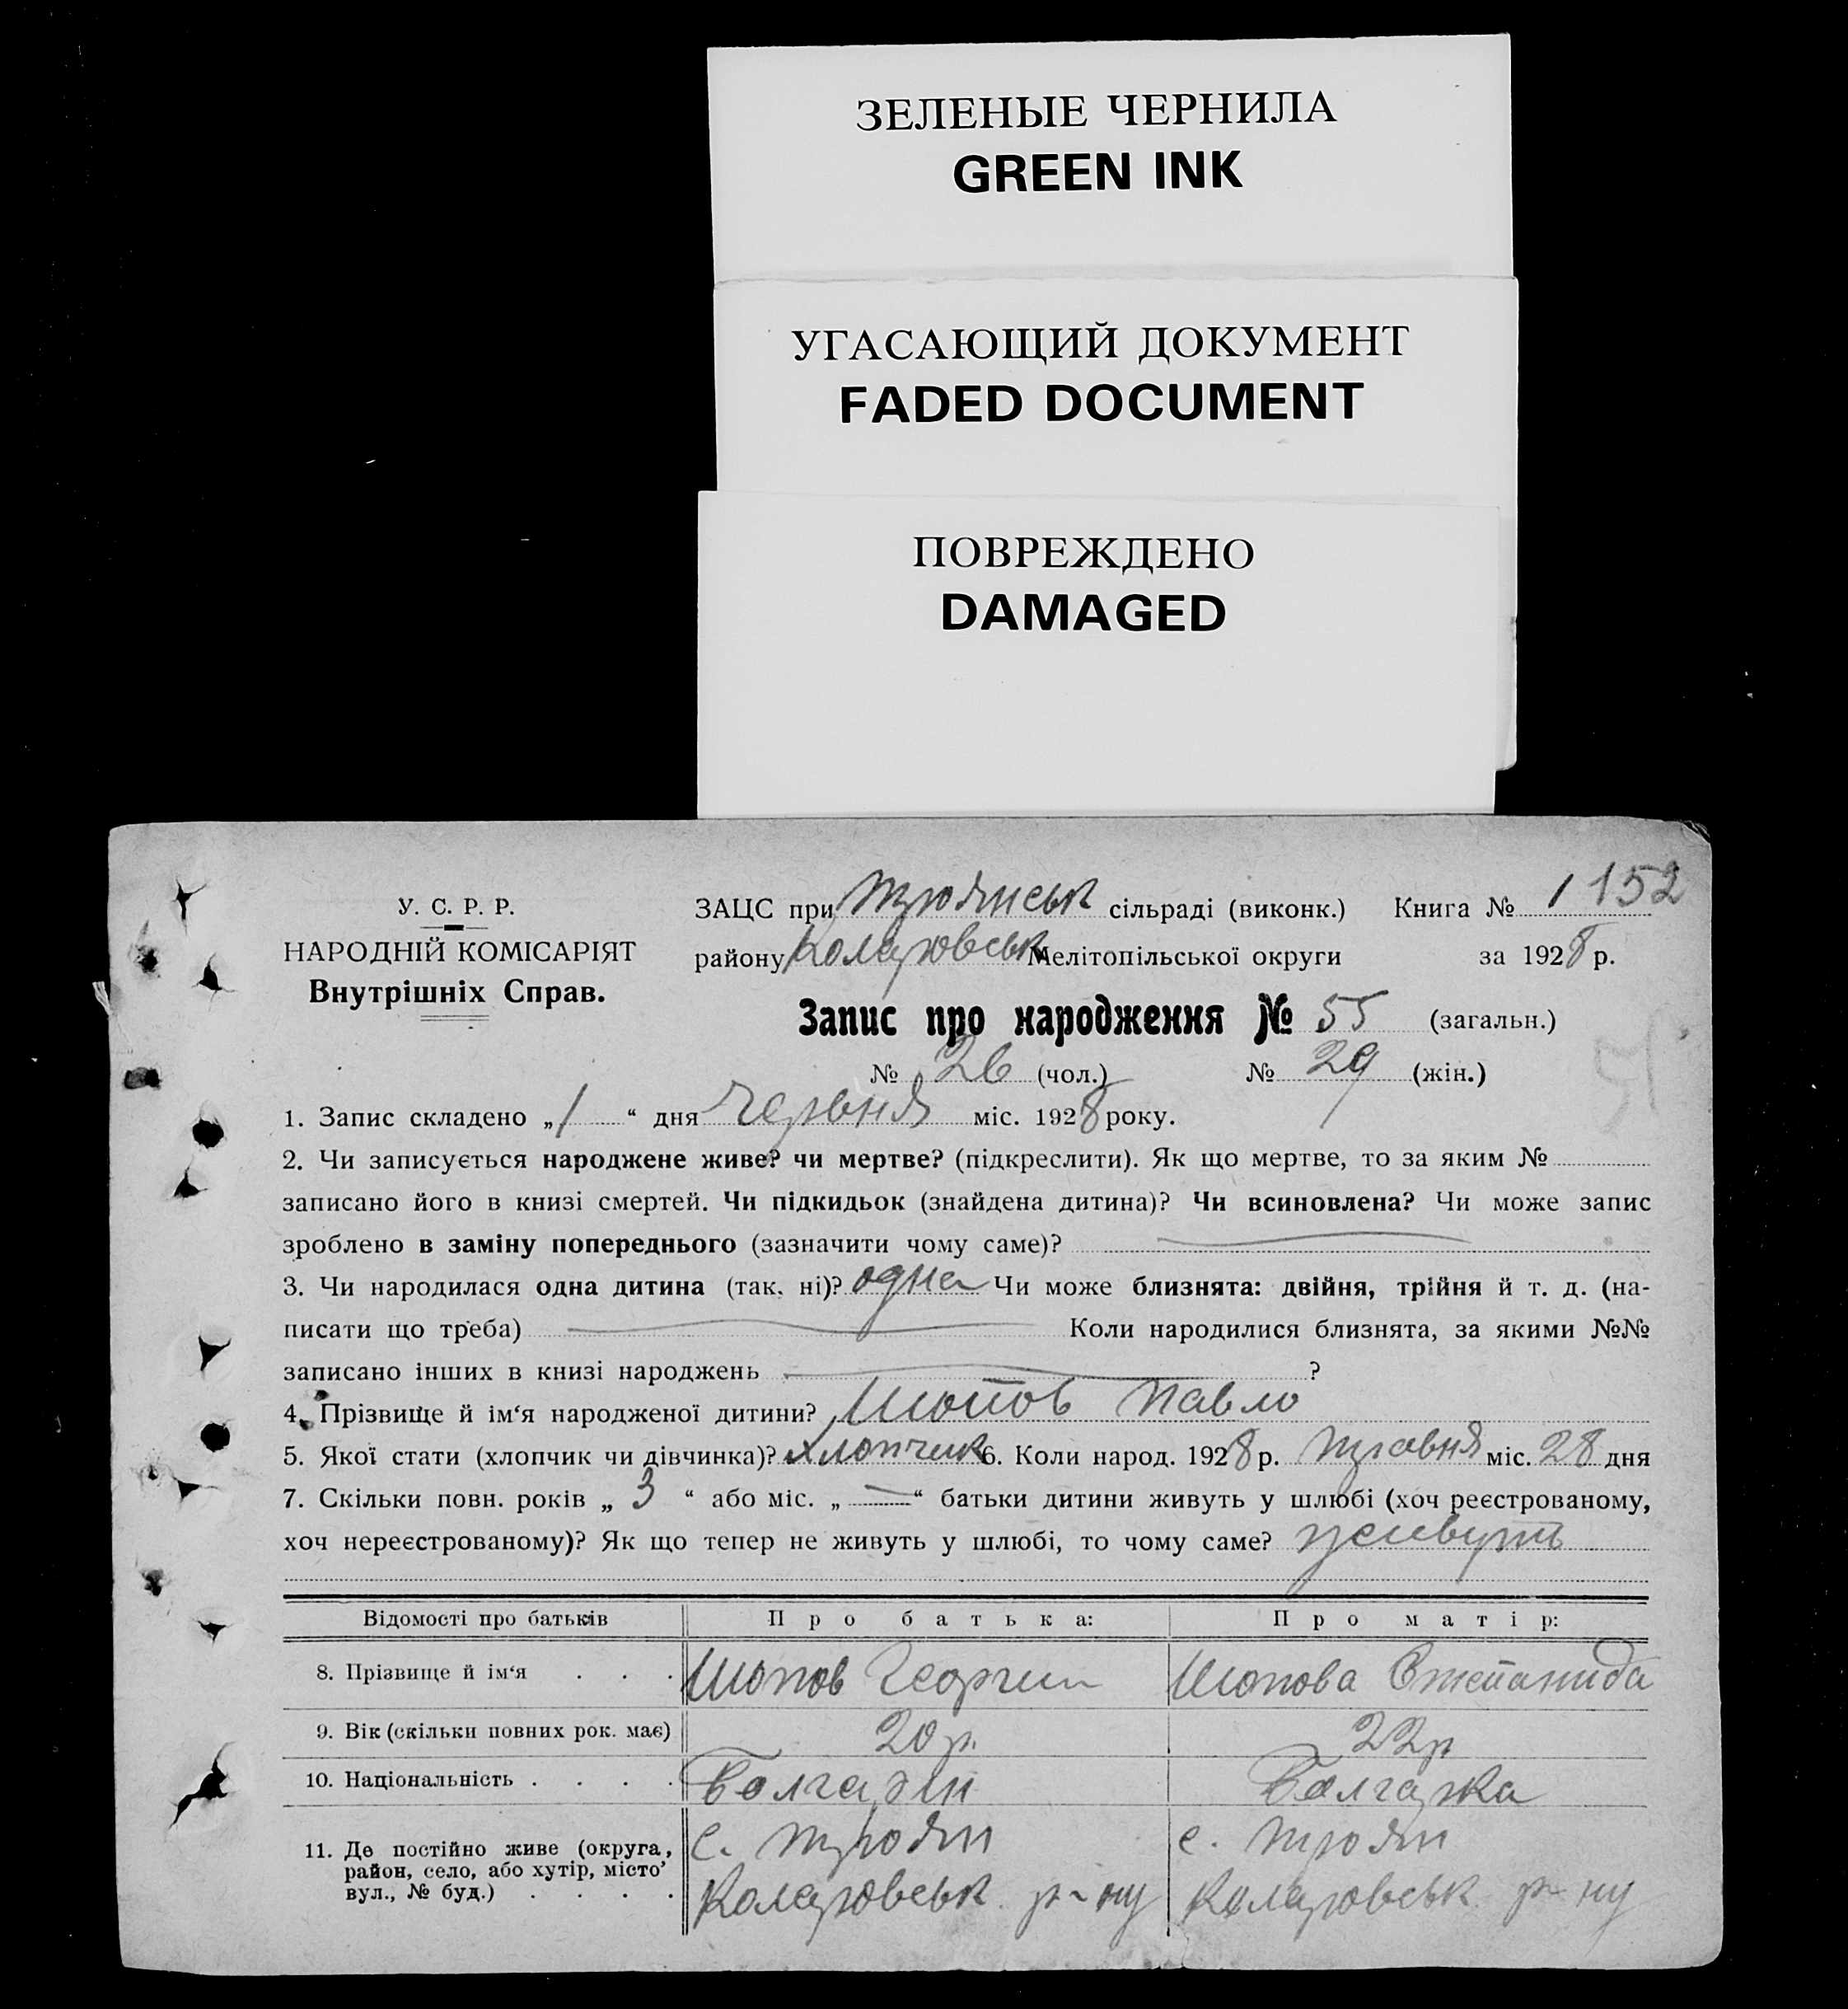 ЗЕЛЕНЫЕ ЧЕРНИЛА
GREEN INK
УГАСАЮЩИЙ ДОКУМЕНТ
FADED DOCUMENT
ПОВРЕЖДЕНО
DAMAGED
У. С. Р. Р.
НАРОДНІЙ КОМІСАРІЯТ
Внутрішніх Справ.
ЗАЦС при Троянськ сільраді (виконк.) Книга № 1 152
району Коларовськ Мелітопільської округи за 1928 р.
Запис про народження № 55 (загальн.)
№ 26 (чол.) № 29 (жін.)
1. Запис складено „1“ дня Червня міс. 1928 року.
2. Чи записується народжене живе? чи мертве? (підкреслити). Як що мертве, то за яким №
записано його в книзі смертей. Чи підкидьок (знайдена дитина)? Чи всиновлена? Чи може запис
зроблено в заміну попереднього (зазначити чому саме)?
3. Чи народилася одна дитина (так, ні)? одна Чи може близнята: двійня, трійня й т. д. (на-
писати що треба) Коли народилися близнята, за якими №№
записано інших в книзі народжень ?
4. Прізвище й ім‘я народженої дитини? Шопов Павло
5. Якої стати (хлопчик чи дівчинка)? хлопчик 6. Коли народ. 1928 р. травня міс. 28 дня
7. Скільки повн. років „ 3 “ або міс. „ — “ батьки дитини живуть у шлюбі (хоч реєстрованому,
хоч нереєстрованому)? Як що тепер не живуть у шлюбі, то чому саме? живуть
Відомості про батьків Про батька: Про матір:
8. Прізвище й ім‘я . . . Шопов Георгин Шопова Степанида
9. Вік (скільки повних рок. має) 20 р. 22 р
10. Національність . . . . Болгарин Болгарка
11. Де постійно живе (округа,
район, село, або хутір, місто’
вул., № буд.) . . . .
с. Троян
Коларовськ р-ну
с. Троян
Коларовськ р-ну